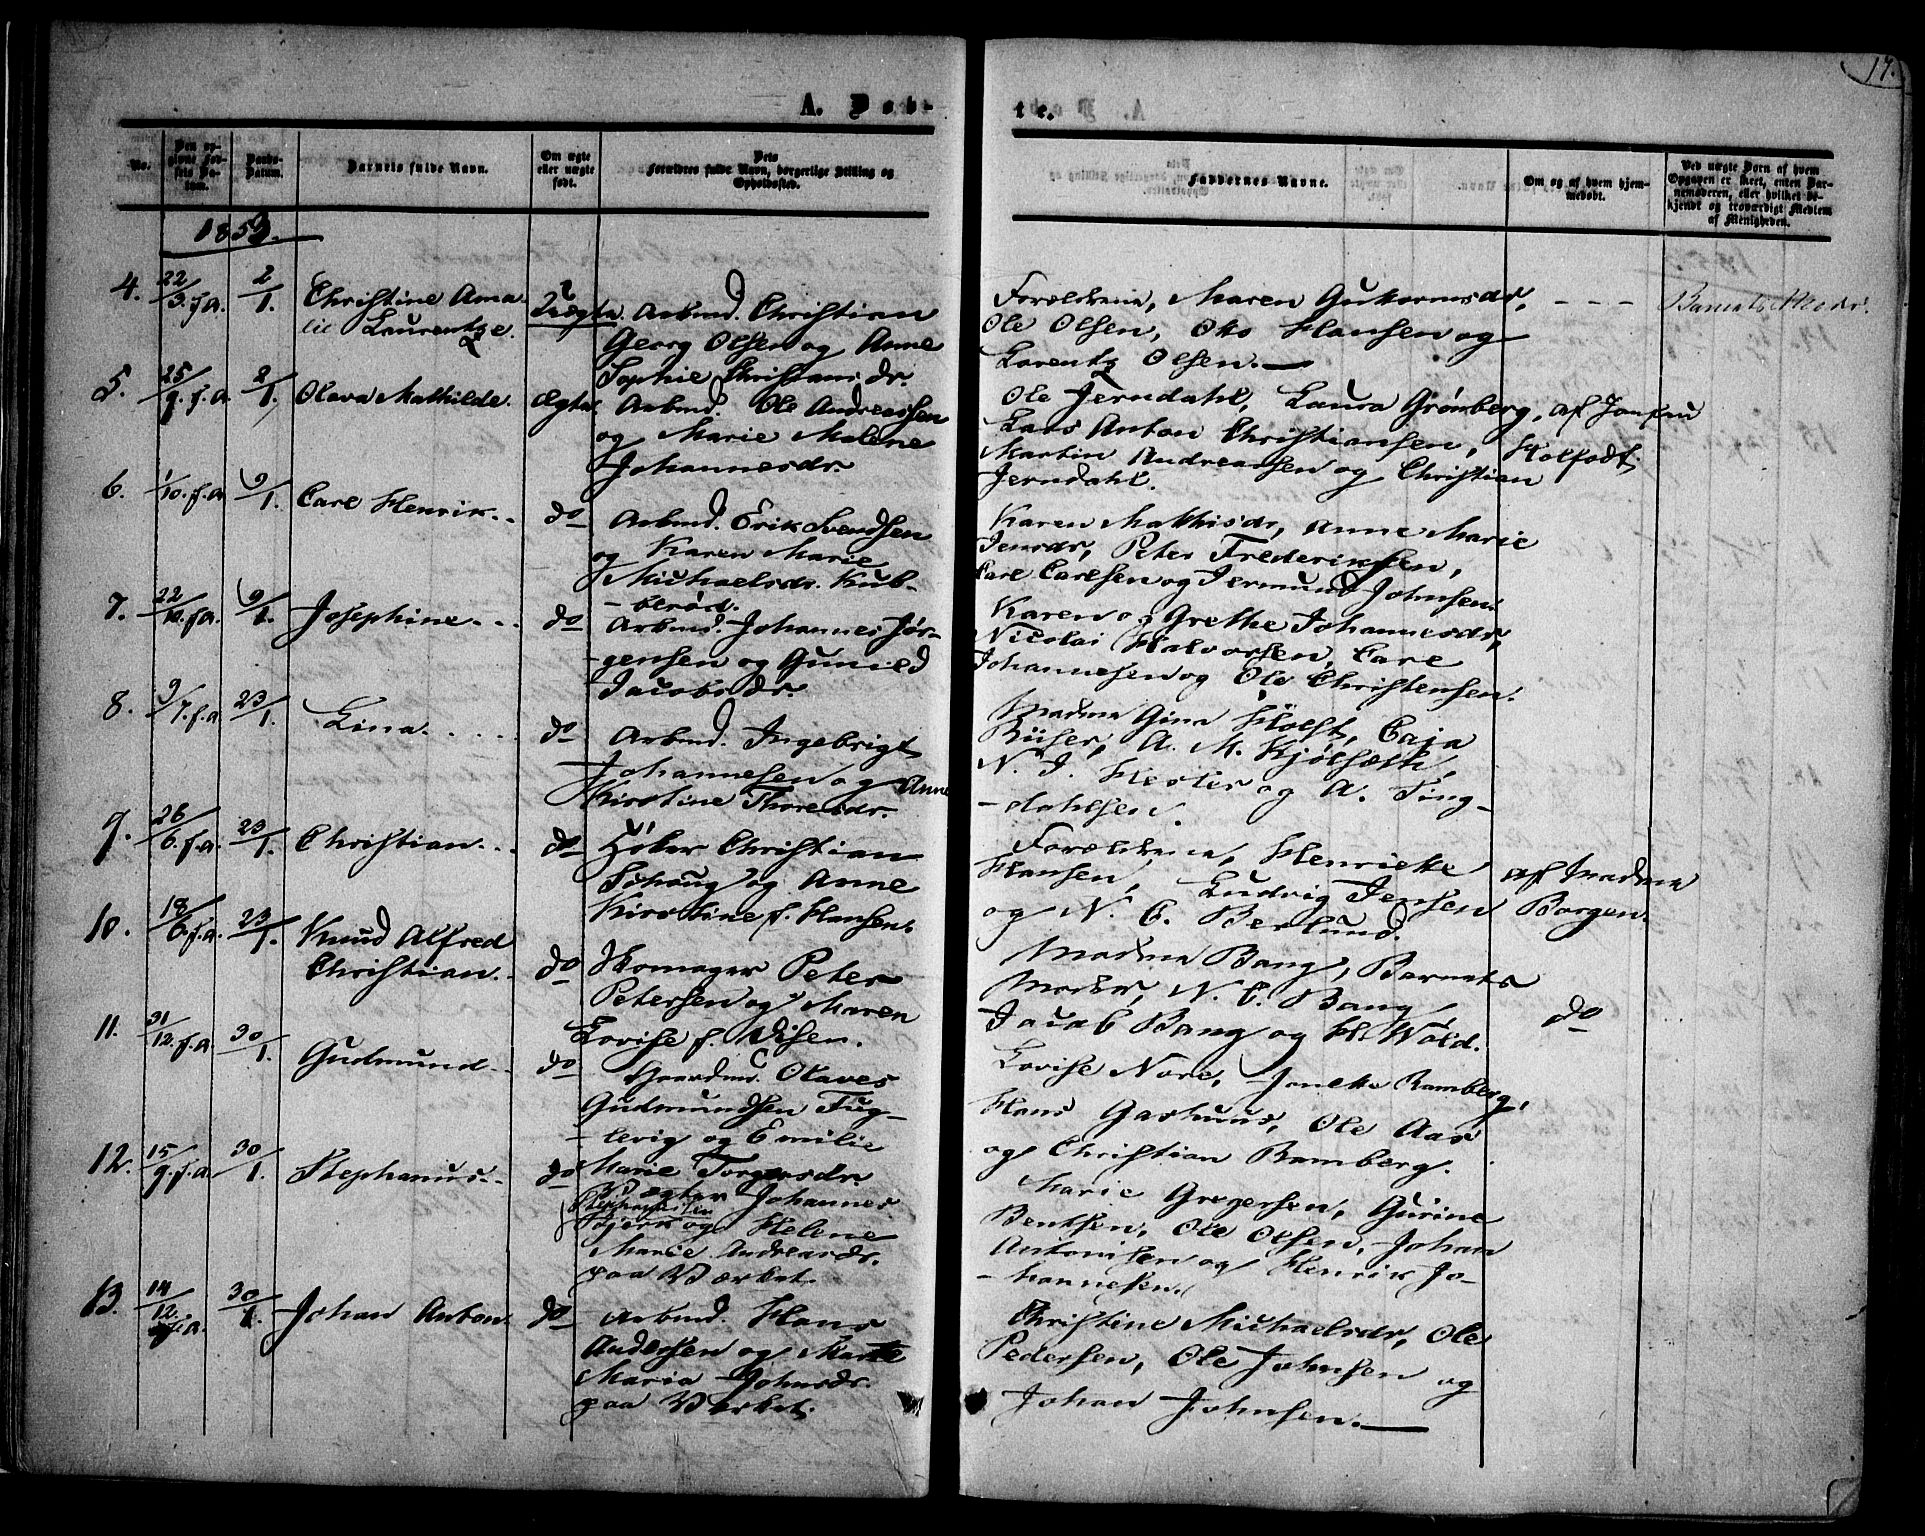 17.
A. Døb-
te.
No.
Den op-
givne Fød-
sels Da-
tum.
Daabs-
Datum.
Barnets fulde Navn.
Om ægte
eller uægte
født.
Dets
Forældres fulde Navn, borgerlige Stilling og
Opholdssted.
Faddernes Navne.
Om og af hvem hjem-
medøbt.
Ved uægte Børn af hvem
Opgaven er skeet, enten Bar-
nemoderen, eller hvilket be-
kjendt og troværdigt Medlem
af Menigheden.
1859.
4. 22/3. f.a. 2/1. Christine Ama-
lie Laurentze.
Uægte
Arbmd. Christian
Georg Olsen og Anne
Sophie Christiansdr.
Forældrene, Maren Guttormsdr,
Ole Olsen, Otto Hansen og
Lorentz Olsen.—
- - -
Barnets Moder.
5. 25/9. f.a. 2/1. Olava Mathilde. ægte
Arbmd. Ole Andreassen
og Marie Malene
Johannesdr.
Ole Jerndahl, Laura Grønberg,
Lars Anton Christiansen,
Martin Andreassen og Christian
Jerndahl.
af Jomfru
Holfodt.
6. 1/10. f.a. 9/1. Carl Henrik. . do
Arbmd. Erik Svendsen
og Karen Marie
Michaelsdr. Kub-
-berød.
Karen Mathisdr, Anne Marie
Jensdr, Peter Frederiksen,
Carl Carlsen og Jermund Johnsen.
7. 22/10. f.a. 9/1. Josephine. . . do
Arbmd. Johannes Jør-
-gensen og Gunild
Jacobsdr.
Karen og Grethe Johannesdr,
Nicolai Halvorsen, Carl
Johannesen og Ole Christensen.
8. 9/7. f.a. 23/1. Lina. . . . . do
Arbmd. Ingebrigt
Johannesen og Anne
Kirstine Thoresdr.
Madme Gina Holst, Caja
Riiser, A. M. Kjølseth,
N. J. Hesler og A. Ting-
-dahlsen.
9. 26/6. f.a. 23/1. Christian. . . do
Høker Christian
Schaug og Anne
Kirstine f. Hansen.
Forældrene, Henriette
Hansen, Ludvig Jensen
og N. C. Berlund.
af Madme
Borgen.
10. 18/6. f.a. 23/1. Knud Alfred
Christian. . do
Skomager Peter
Petersen og Maren
Lovise f. Olsen.
Madme Bang, Barnets
Moder, N. C. Bang,
Jacob Bang og H. Wold.
do
11. 31/12. f.a. 30/1. Gudmund. . do
Gaardm. Olaves
Gudmundsen Fug-
-levig og Emilie
Marie Torgersdr.
Lovise Nore, Jonette Ramberg,
Hans Gashuus, Ole Aas
og Christian Ramberg.
12. 15/9. f.a. 30/1. Stephanus. . do
Vægter Johannes
Stephanusen
Bjerk og Helene
Marie Andreasdr.
paa Værket.
Marie Gregersen, Gurine
Bentsen, Ole Olsen, Johan
Antonisen og Henrik Jo-
-hannesen.
13. 14/12. f.a. 30/1. Johan Anton. do
Arbmd. Hans
Andersen og Marte
Maria Johnsdr.
paa Værket.
Christine Michaelsdr, Ole
Pedersen, Ole Johnsen og
Johan Johnsen.—